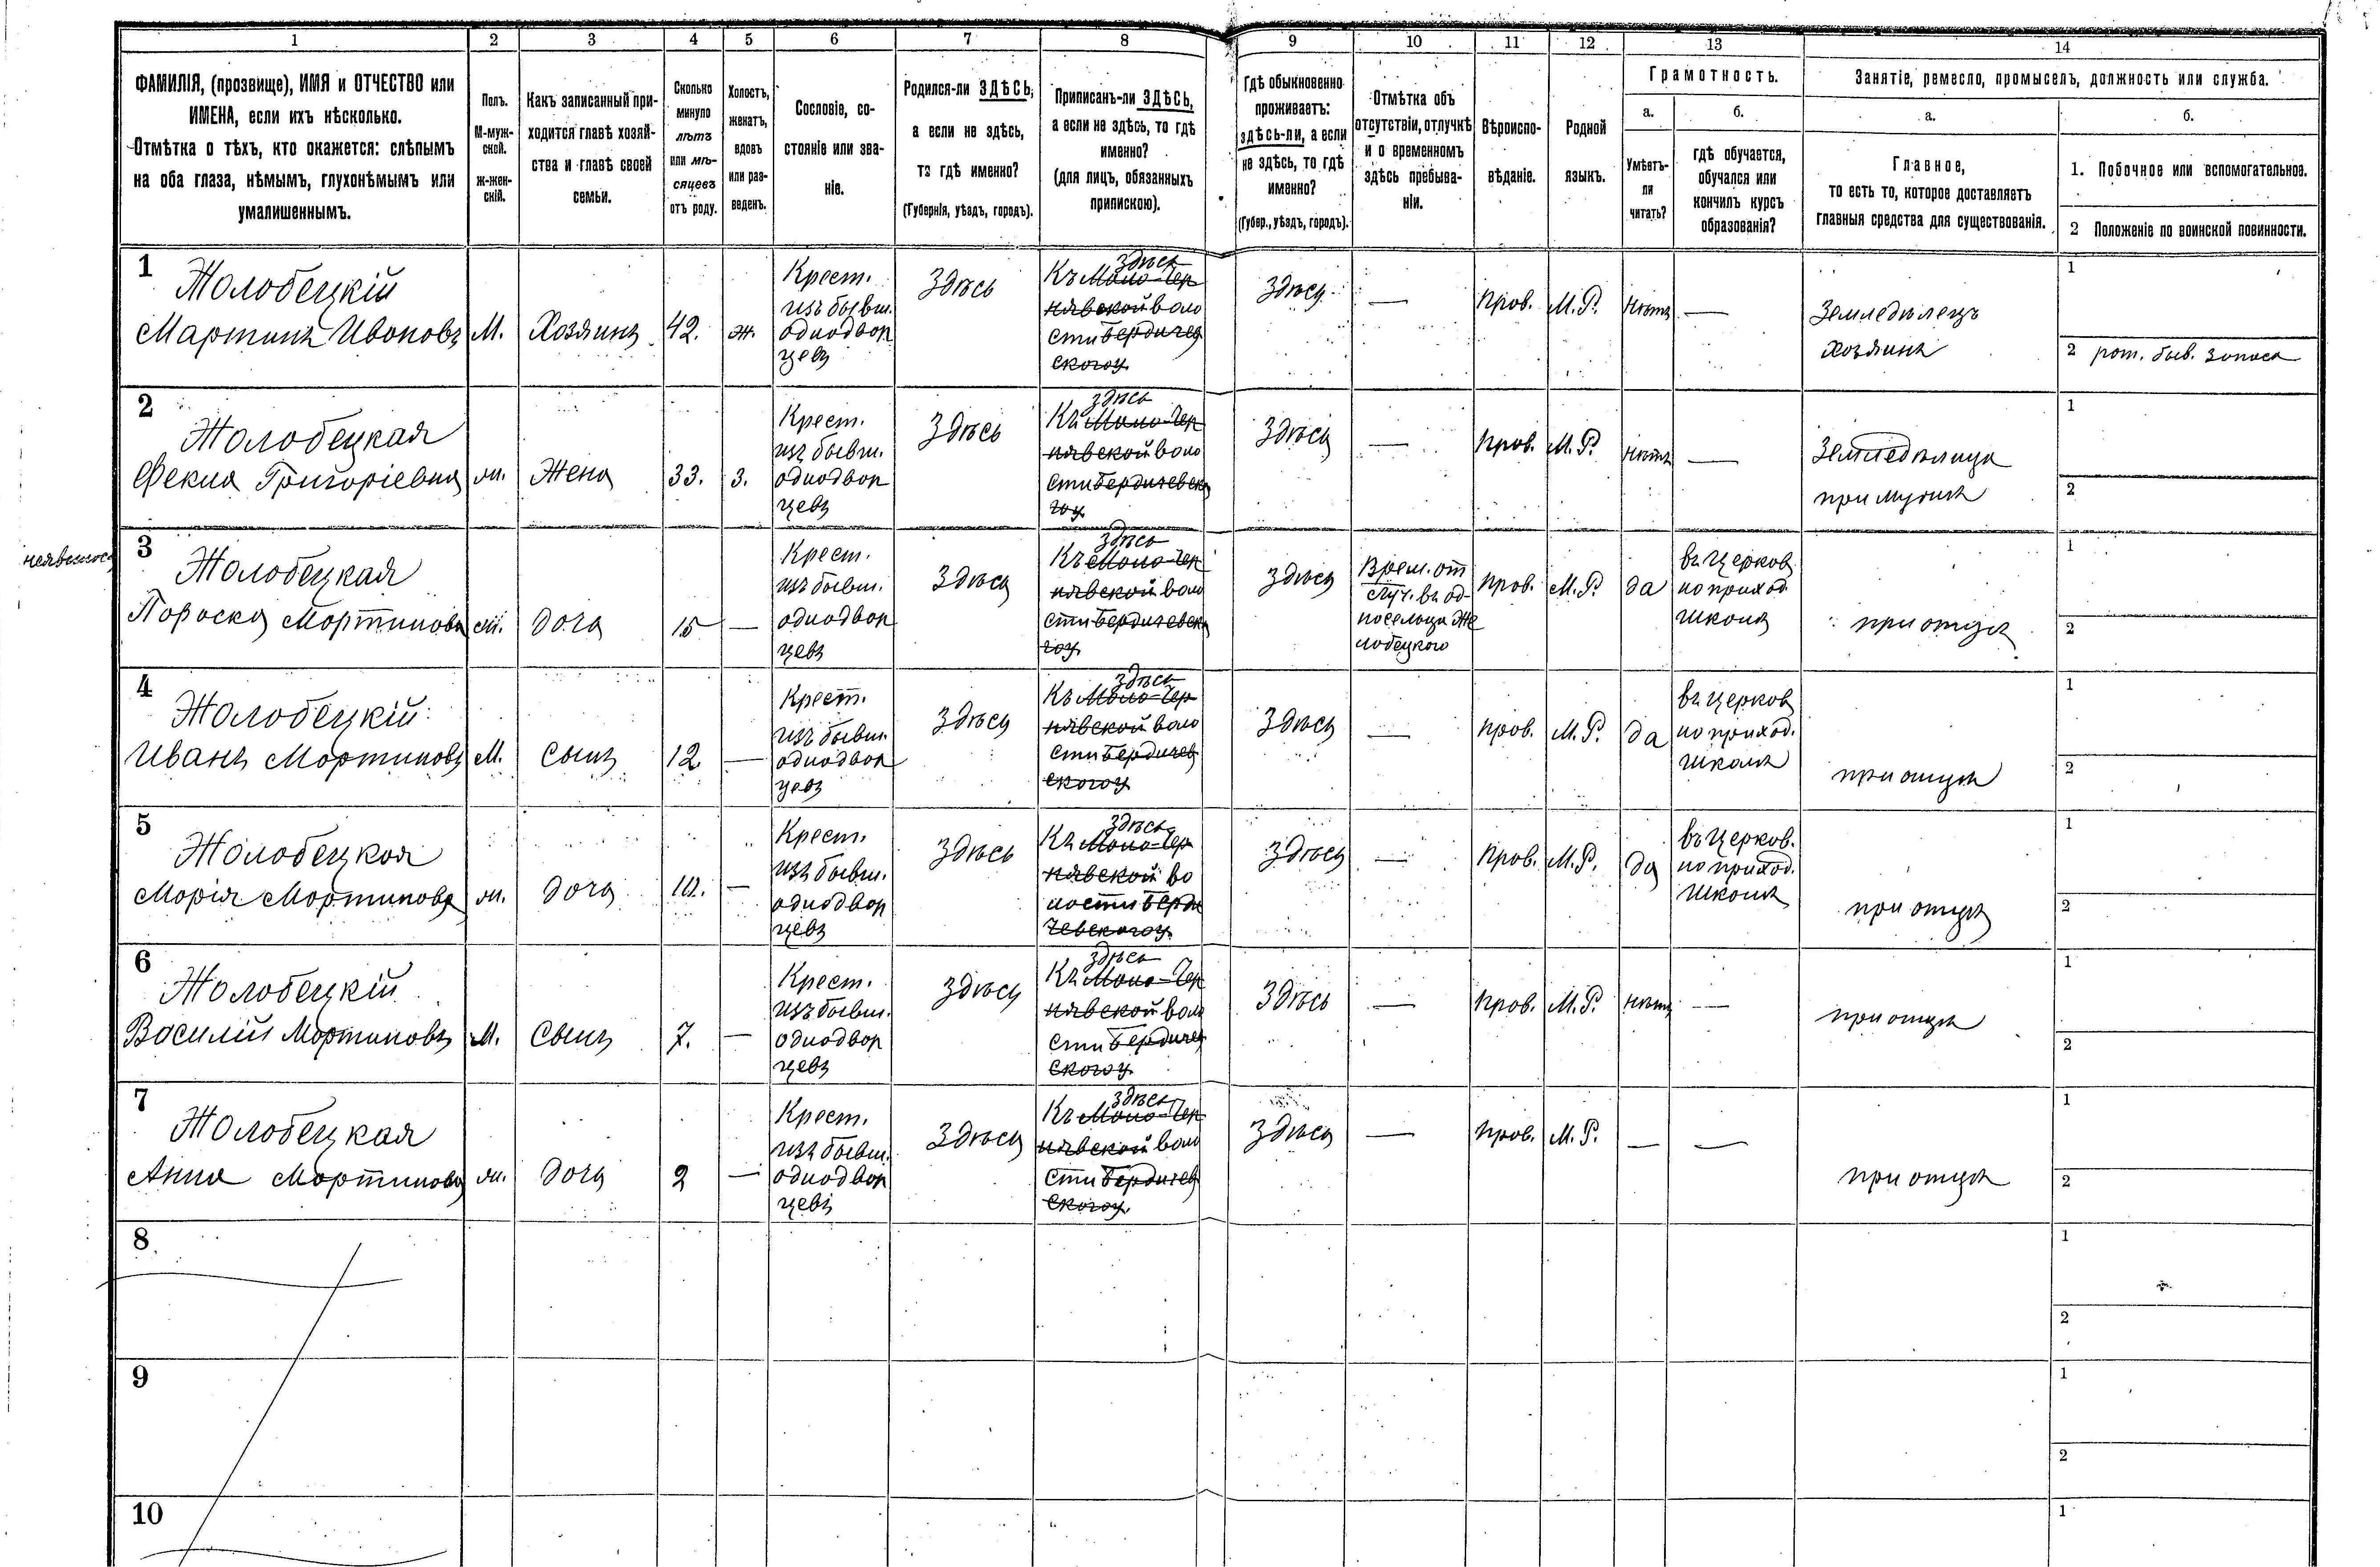 1 2 3 4 5 6 7 8 9 10 11 12 13 14
ФАМИЛІЯ, (прозвище), ИМЯ и ОТЧЕСТВО или
ИМЕНА, если ихъ нѣсколько.
Отмѣтка о тѣхъ, кто окажется: слѣпымъ
на оба глаза, нѣмымъ, глухонѣмымъ или
умалишеннымъ.
Полъ.
М-муж-
ской.
ж-жен-
скій.
Какъ записанный при-
ходится главѣ хозяй-
ства и главѣ своей
семьи.
Сколько
минуло
лѣтъ
или мѣ-
сяцевъ
отъ роду.
Холостъ,
женатъ,
вдовъ
или раз-
веденъ.
Сословіе, со-
стояніе или зва-
ніе.
Родился-ли ЗДѢСЬ,
а если не здѣсь,
то гдѣ именно?
(Губернія, уѣздъ, городъ).
Приписанъ-ли ЗДѢСЬ,
а если не здѣсь, то гдѣ
именно?
(для лицъ, обязанныхъ
припискою).
Гдѣ обыкновенно
проживаетъ:
здѣсь-ли, а если
не здѣсь, то гдѣ
именно?
(Губер., уѣздъ, городъ).
Отмѣтка объ
отсутствіи, отлучкѣ
и о временномъ
здѣсь пребыва-
ніи.
Вѣроиспо-
вѣданіе.
Родной
языкъ.
Грамотность.
а.
Умѣетъ-
ли
читать?
б.
гдѣ обучается,
обучался или
кончилъ курсъ
образованія?
Занятіе, ремесло, промыселъ, должность или служба.
а.
Главное,
то есть то, которое доставляетъ
главныя средства для существованія.
б.
1. Побочное или вспомогательное.
2 Положеніе по воинской повинности.
1
Жолобецкій
Мартинъ Ивановъ
М.
Хозяинъ
42.
ж.
Крест.
изъ бывш.
однодвор
цевъ
Здѣсь
здѣсь
Къ Мало-Чер
нявской воло
сти Бердичев
скогоу.
Здѣсь
—
Прав.
М.Р.
нѣтъ
—
Земледѣлецъ
Хозяинъ
1
2 рат. быв. запаса
2
Жолобецкая
Фекла Григоріевна
ж.
Жена
33.
з.
Крест.
изъ бывш.
однодвор
цевъ
Здѣсь
здѣсь
Къ Мало-Чер
нявской воло
сти Бердичевска
гоу.
Здѣсь
—
Прав.
М.Р.
нѣтъ
—
Земледѣлица
при мужѣ
1
2
3
Жолобецкая
Пораска Мартинова
ж.
дочь
15
—
Крест.
изъ бывш.
однодвор
цевъ
Здѣсь
здѣсь
Къ Мало-Чер
нявской воло
сти Бердичевска
гоу.
Здѣсь
Врем. от
луч. въ од-
поселаца Жо
лобецкого
Прав.
М.Р.
да
въ церков
но приход
школѣ
при отцѣ
1
2
4
Жолобецкій
Иванъ Мартиновъ
М.
сынъ
12
—
Крест.
изъ бывш.
однодвор
цевъ
Здѣсь
здѣсь
Къ Мало-Чер
нявской воло
сти Бердичев
скогоу
Здѣсь
—
Прав.
М.Р.
да
въ церков
но приход.
школѣ
при отцѣ
1
2
5
Жолобецкая
Марія Мартинова
ж.
дочь
10.
—
Крест.
изъ бывш.
однодвор
цевъ
Здѣсь
здѣсь
Къ Мало-Чер
нявской во
лости Берди
чевскогоу.
Здѣсь
—
Прав.
М.Р.
да
въ церков.
но приход.
школѣ
при отцѣ
1
2
6
Жолобецкій
Василій Мартиновъ
М.
Сынъ
7.
—
Крест.
изъ бывш.
однодвор
цевъ
Здѣсь
здѣсь
Къ Мало-Чер
нявской воло
сти Бердичев
скогоу.
Здѣсь
—
Прав.
М.Р.
нѣтъ
—
при отцѣ
1
2
7
Жолобецкая
Анна Мартинова
ж.
дочь
2
—
Крест.
изъ бывш.
однодвор
цевъ
Здѣсь
здѣсь
Къ Мало-Чер
нявской воло
сти Бердичев
скогоу.
Здѣсь
—
Прав.
М.Р.
—
—
при отцѣ
1
2
8
1
2
9
1
2
10
1